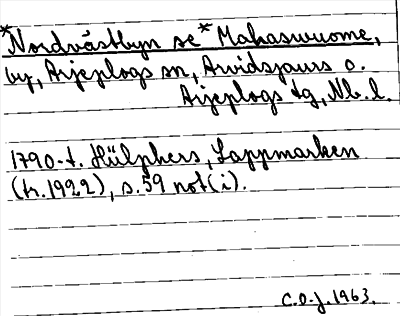 *Nordvästbyn se *Mahaswuome,
by, Arjeplogs sn, Arvidsjaurs o.
Arjeplogs tg, Nb. l.
1790-t. Hülphers, Lappmarken
(tr. 1922), s. 59 not(i).
C.O.J. 1963.